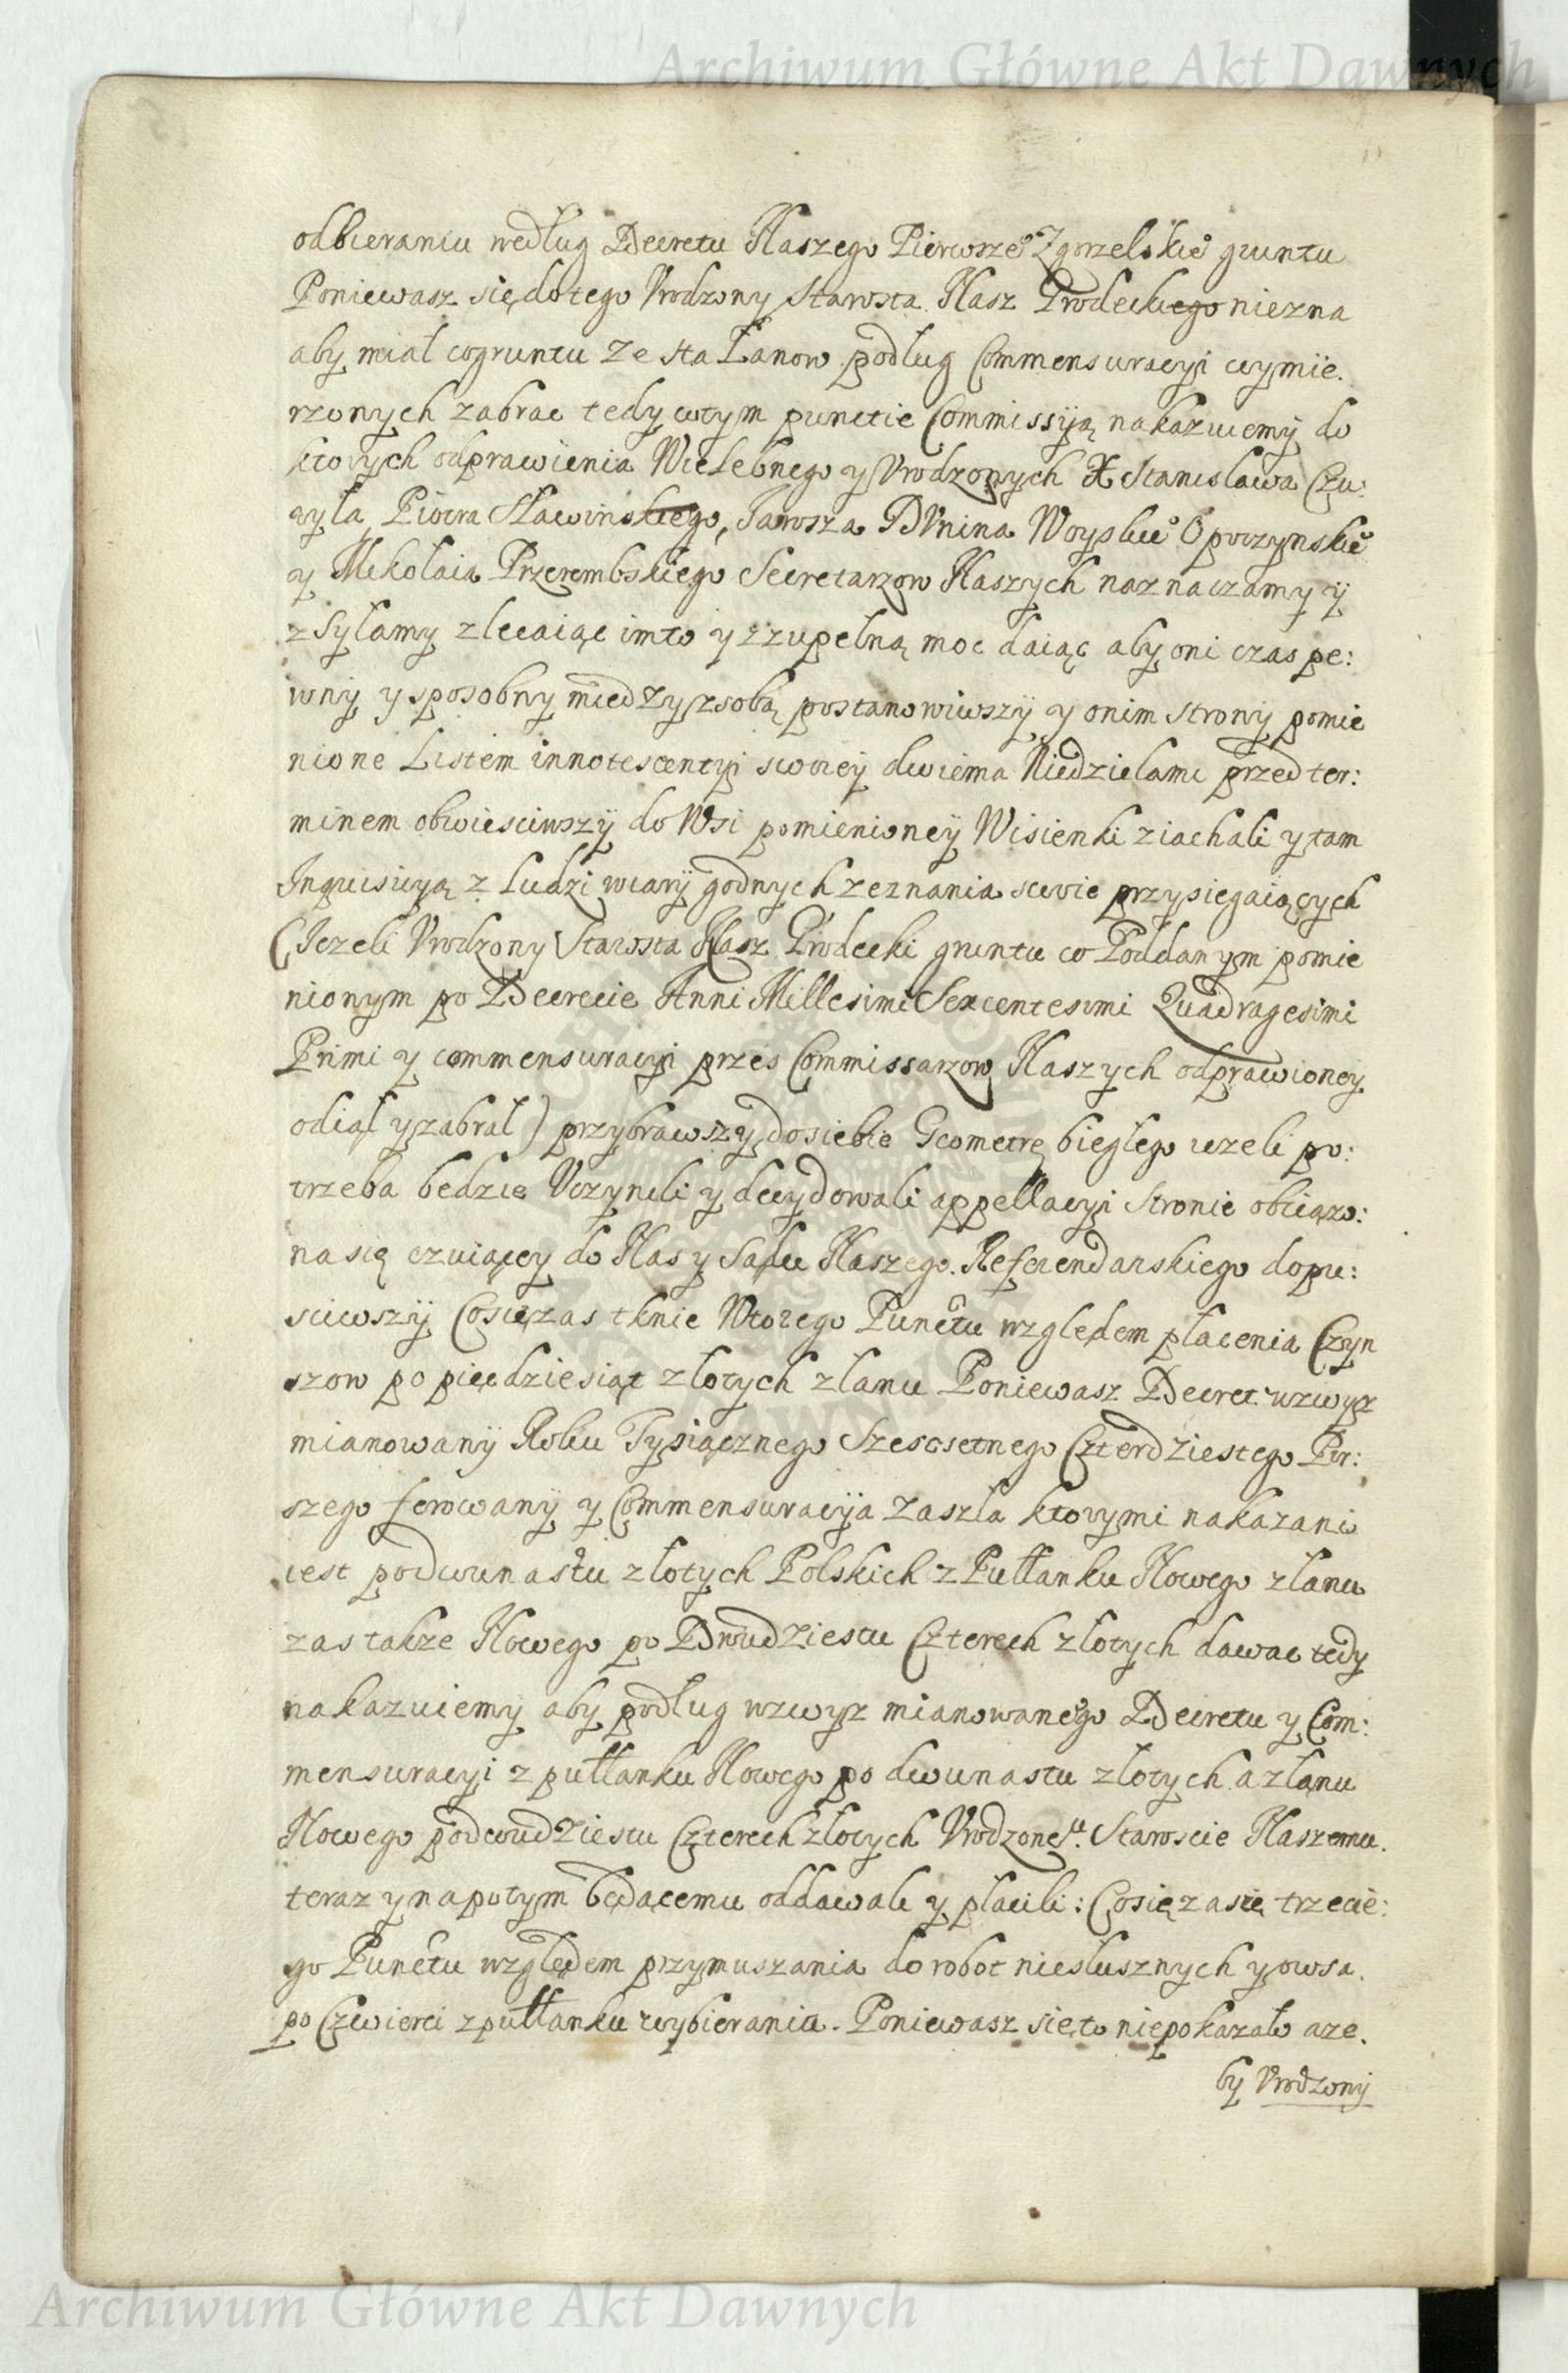 Archiwum Główne Akt Dawnych
odbieraniu według Decretu Naszego Pierwsze° Zgorzelskie° gruntu
Poniewasz się do tego Vrodzony Starosta Nasz Grodeckiego niezna
aby miał co gruntu ze sta Łanow podług Commensuracyi wymie.
rzonych zabrac tedy wtym punctie Commissyią nakazuiemy do
ktorych odprawienia Wielebnego y Vrodzonych X Stanisława Czu:
ryła Piotra Sławinskiego, Jarosza Dunina Woyskie° Opoczynskie°
y Mikołaia Przerembskiego Secretarzow Naszych naznaczamy y
zsyłamy zlecaiąc imto y zzupełną moc daiąc aby oni czas pe:
wny y sposobny miedzy zsobą postanowiwszy y onim strony pomie
nione Listem innotescentyi swoiey dwiema Niedzielami przed ter:
minem obwiesciwszy do Wsi pomienioney Wisienki ziachali y tam
Inquisicyą z Ludzi wiary godnych zeznania swoie przysiegaiących
(Jezeli Vrodzony Starosta Nasz Grodecki gruntu co Poddanym pomie
nionym po Decrecie Anni Millesimi Sexcentesimi Quadragesimi
Primi y commensuracyi przes Commissarzow Naszych odprawioney
odiął y zabrał) przybrawszy do siebie Geometrę biegłego iezeli po:
trzeba bedzie Vczynili y decydowali appellacyi stronie obciązo:
na się czuiącey do Nas y Sądu Naszego Referendarskiego dopu:
sciwszy Co się zas tknie Wtorego Punctu względem płacenia Czyn
szow po piędziesiąt złotych złanu Poniewasz Decret wzwysz
mianowany Roku Tysiącznego Szescsetnego Czterdziestego Pir:
szego ferowany y Commensuracyia zaszła ktorymi nakazano
iest po dwunastu złotych Polskich z Pułłanku Nowego złanu
zas takze Nowego po Dwudziestu Czterech złotych dawac tedy
nakazuiemy aby podług wzwysz mianowanego Decretu y Com:
mensuracyi z pułłanku Nowego po dwunastu złotych a złanu
Nowego po dwudziestu Czterech złotych Vrodzone^u. Staroscie Naszemu.
teraz y napotym będącemu oddawali y płacili: Co się zasię trzecie:
go Punctu względem przymuszania do robot niesłusznych y owsa
po Czwierci zpułłanku wybierania. Poniewasz się to niepokazało aze.
by Vrodzony
Archiwum Główne Akt Dawnych